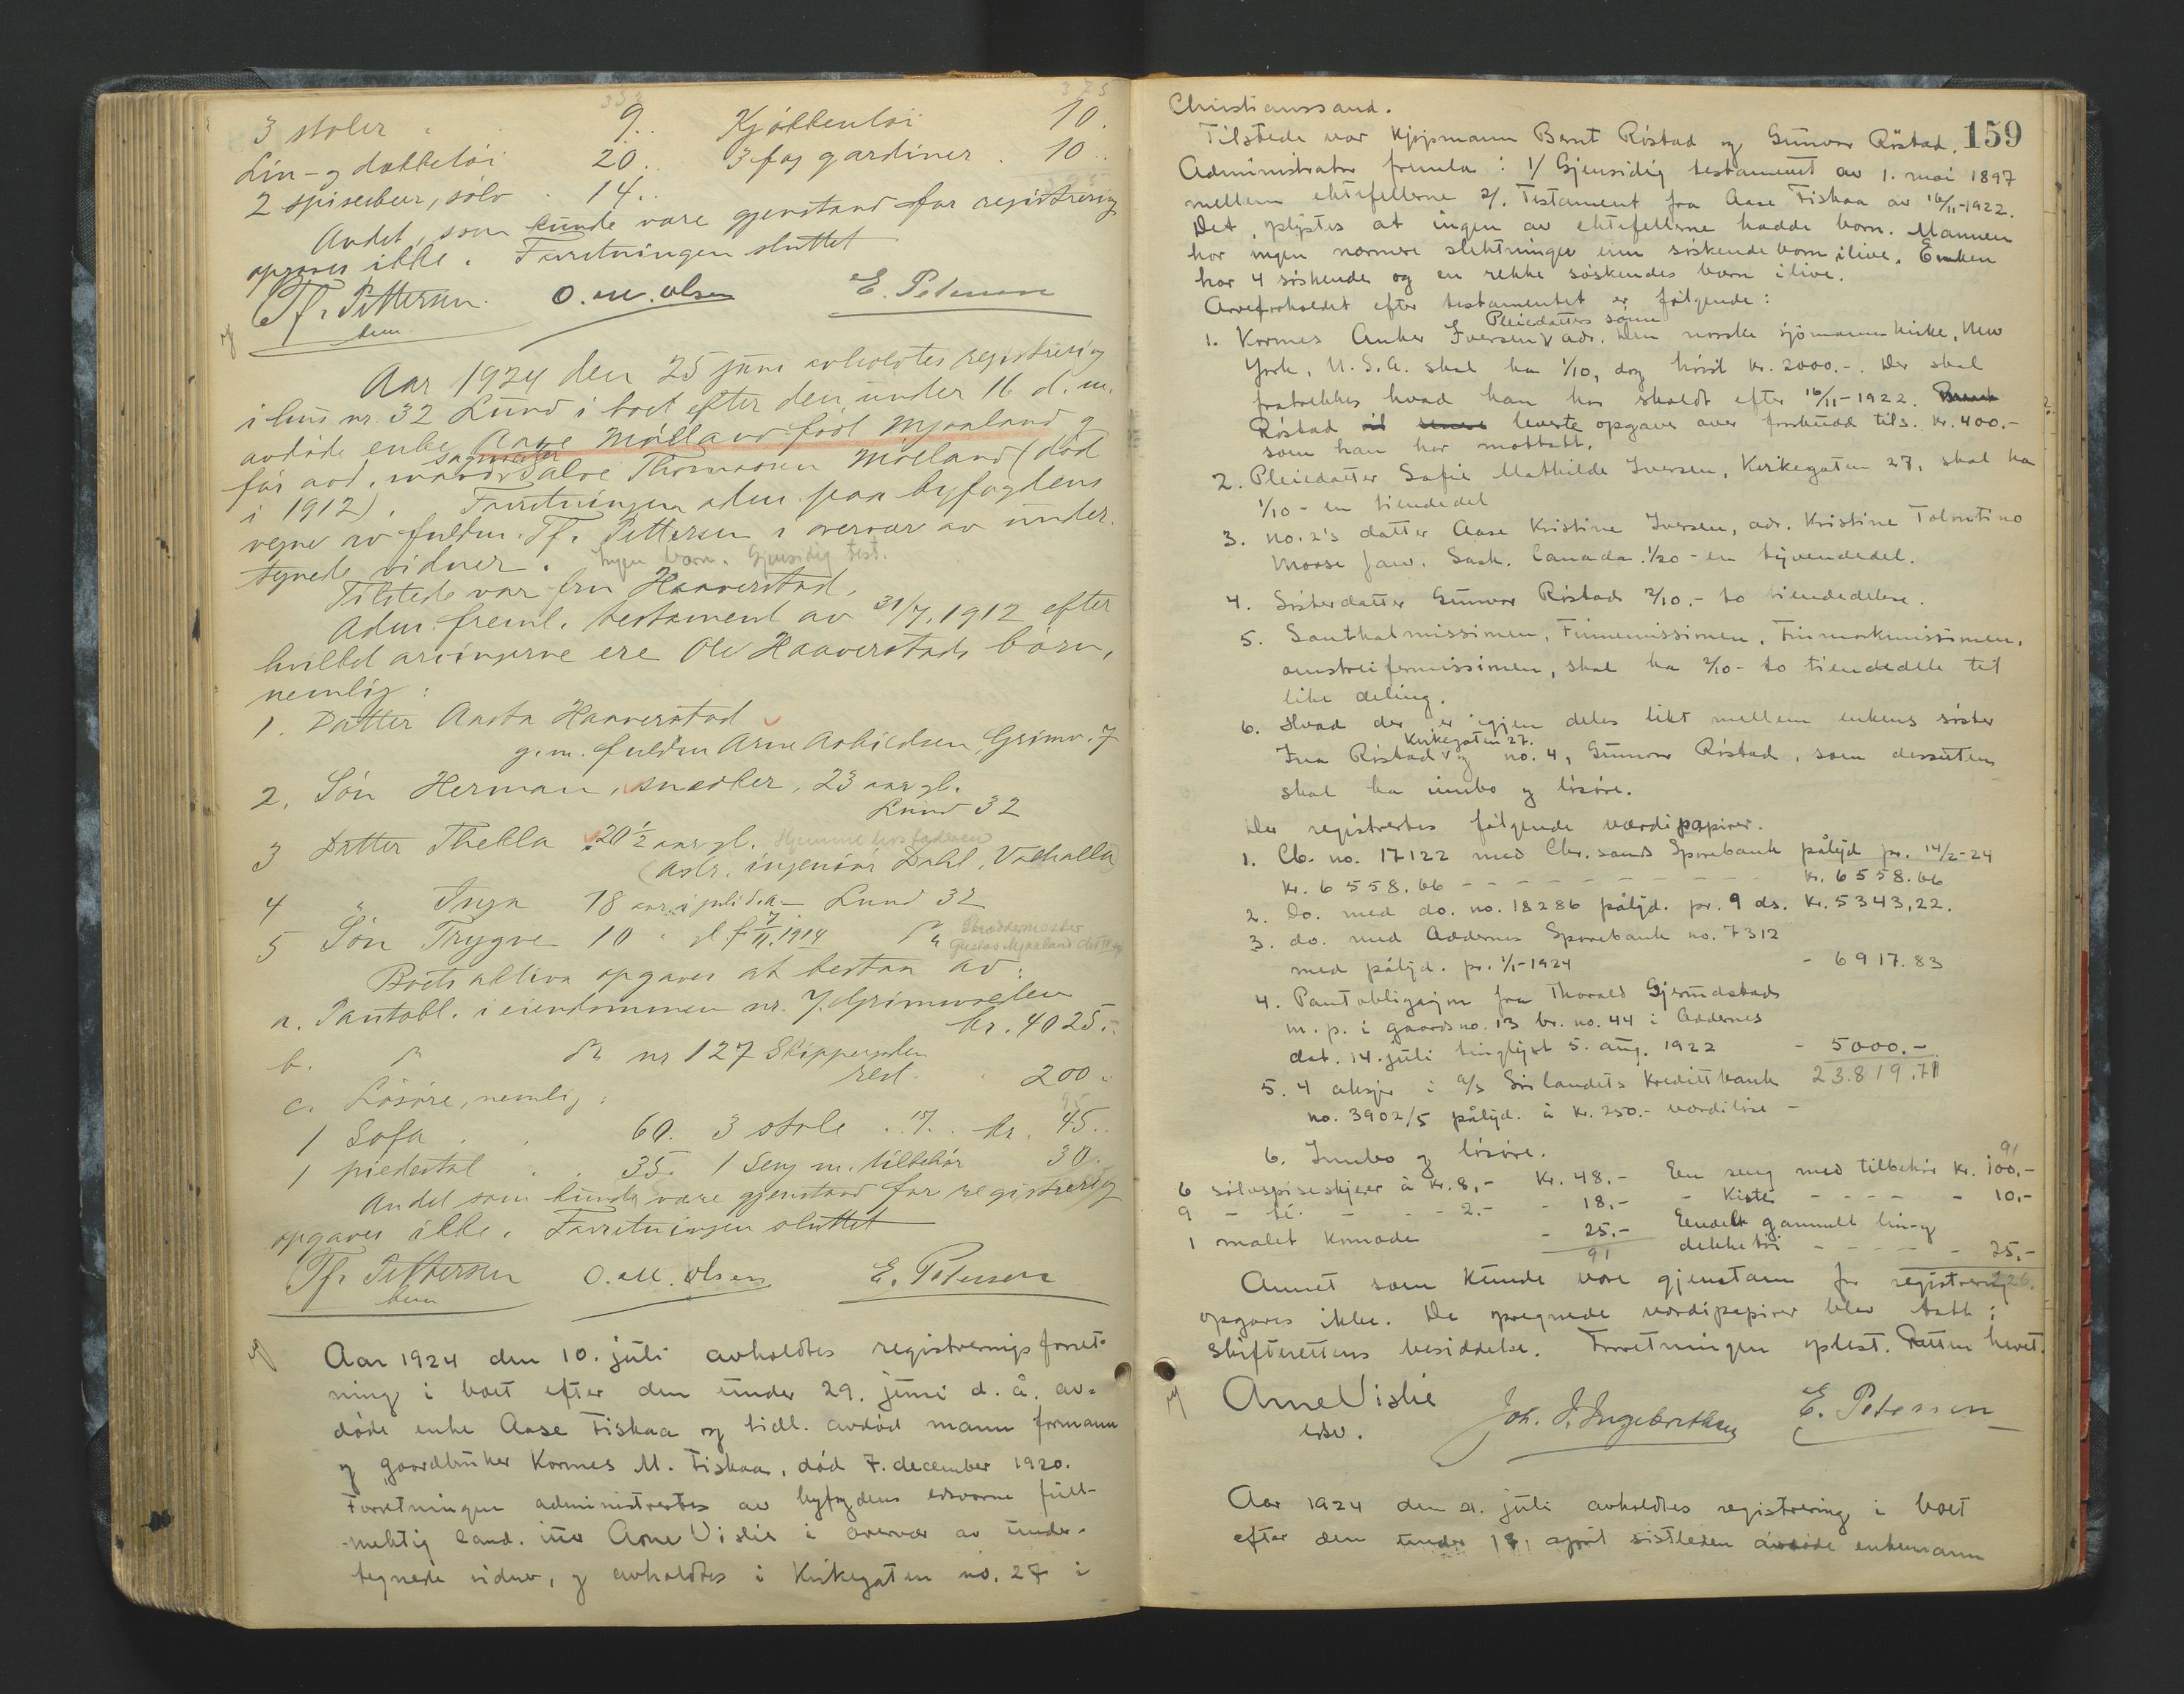 3 stoler . . 9.. Kjökkentöi 10.
Lin- og dækketöi 20.. 3 fag gardiner . 10..
2 spiseskeer, sölv . 14..
Andet, som kunde være gjenstand for registrering
opgaves ikke. Forretningen sluttet
Tf. Pettersen O. M. Olsen E. Petersen
bem.
Aar 1924 den 25 juni avholdtes registrering
i hus nr. 32 Lund i boet efter den under 16 d. m.
avdöde enke Aase Mölland född Mjaaland og
sagmester
för avd. mand Salve Thomassen Mölland (död
i 1912). Forretningen adm. paa byfogdens
vegne av fuldm. Tf. Pettersen i overvær av under-
tegnede vidner. Ingen barn. Gjensidig test.
Tilstede var fru Haaverstad.
Adm. freml. testament av 31/7. 1912 efter
hvilket arvingerne ere Ole Haaverstads börn,
nemlig:
1. Datter Aasta Haaverstad
g. m. fuldm Arne Asbildsen, Grimv. 7
2. Sön Herman, snedker, 23 aar gl.
Lund 32
3 Datter Thekla 20½ aar gl. Hjemme hos faderen
(adr. ingeniör Dahl, Valhalla)
4 " Inga 18 aar i juli d. a. - Lund 32
5 Sön Trygve 10 " gl. f. 7/11. 1914 Skreddermester
Gustav Mjaaland
Boets aktiva opgaves at bestaa av:
a. Pantobl. i eiendommen nr. 7 Grimsveien
kr. 4025..
b. nr 127 Skippergaten
rest. . 200..
c. Lösöre, nemlig:
95
1 Sofa . . 60. 3 stole . 15. . kr. 45..
1 piedestal . . 35. 1 Seng m. tilbehör 30.
Andet som kunde være gjenstand for registrering
opgaves ikke. Forretningen sluttet
Tf. Pettersen O. M. Olsen E. Petersen
bem
Aar 1924 den 10. juli avholdtes registreringsforret-
ning i boet efter den under 29. juni d. å. av-
döde enke Aase Fiskaa og tidl. avdöd mann formann
og gaardbruker Kornes M. Fiskaa, död 7. december 1920.
Forretningen administrertes av byfogdens edsvorne full-
mektig cand. jur Arne Vislie i overvær av under-
tegnede vidner, og avholdtes i Kirkegaten no. 27 i
159
Christianssand.
Tilstede var Kjøpmann Bernt Röstad og Gunvor Röstad.
Administrator fremla: 1/ Gjensidig testament av 1. mai 1897
mellem ektefellerne 2/. Testament fra Aase Fiskaa av 16/11-1922.
Det oplystes at ingen av ektefellerne hadde barn. Mannen
har ingen nærmere slektninger enn söskendebarn ilive. Enken
har 4 söskende og en rekke söskendes barn ilive.
Arveforholdet efter testamentet er fölgende:
Pleiedatters sönn
1. Kornes Anker Iversen, adr. Den norske sjömannskirke, New
York, U.S.A. skal ha 1/10, dog höist kr. 2000.-. Der skal
fratrekkes hvad han har skoldt efter 16/11-1922.
Röstad leverte opgave over forskudd tils. kr. 400.-
som han har mottatt.
2. Pleiedatter Sofie Mathilde Iversen, Kirkegaten 27, skal ha
1/10 - en tiendedel
3. no. 2's datter Aase Kristine Iversen, adr. Kristine Tolentino
Moose Jaw. Sask. Canada. 1/20 - en tyvendedel.
4. Sösterdatter Gunvor Röstad 2/10.- to tiendedeler.
5. Santhalmissionen, Finnemissionen, Finmarkmissionen,
omstreifermissionen, skal ha 2/10 - to tiendedele til
like deling.
6. Hvad der er igjen deles likt mellem enkens söster
Kirkegaten 27.
Ina Röstad og no. 4, Gunvor Röstad, som dessuten
skal ha innbo og lösöre.
Der registrertes fölgende værdipapirer.
1. Cb. no. 17122 med Chr.sands Sparebank pålyd pr. 14/2-24
kr. 6558.66 - - - - - - - - - kr. 6558.66
2. Do. med do. no. 18286 pålyd. pr. 9 ds. Kr. 5343,22.
3. do. med Oddernes Sparebank no. 7312
med pålyd. pr. 1/1-1924 - 6917.83
4. Pantobligasjon fra Thorald Gjerudstad
m. p. i gaardsno. 13 br. no. 44 i Oddernes
dat. 14. juli tinglyst 5. aug. 1922 - 5000.-
5. 4 aksjer i A/S Sörlandets Kreditbank 23.819.71
no. 3902/5 pålyd. à kr. 250.- værdilöse -
6. Innbo og lösöre.
91
6 sölvspiseskjeer à kr. 8,- Kr. 48.- Een seng med tilbehör kr. 100.-
9 - té - - - 2.- - 18.- - Kiste - - - - - 10.-
1 malet komode - 25.- Eendel gammelt lin- og
91 dekketöi - - - - - 25.-
Annet som kunde være gjenstann for registrering 226.
opgaves ikke. De oregnede værdipapirer blev tatt i
Skifterettens besiddelse. Forretningen oplest. Retten hevet.
Arne Vislie Joh. J. Ingebrethsen E. Petersen
edsv.
Aar 1924 den 21. juli avholdtes registrering i boet
efter den under 18, april sistleden avdöde enkemann